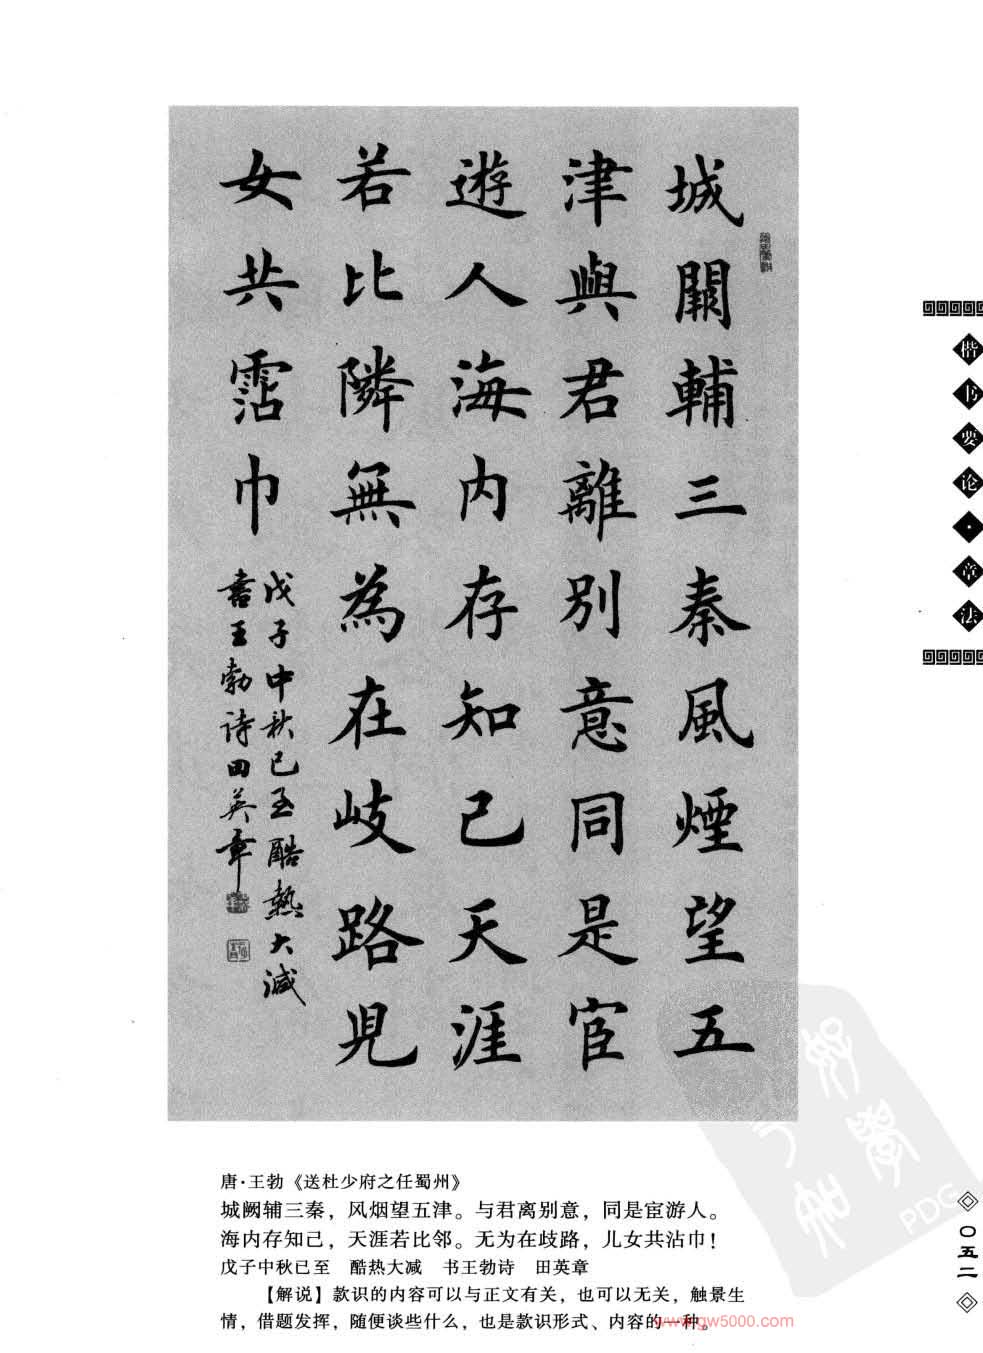 城闕輔三秦風煙望五
津與君離別意同是宦
遊人海内存知己天涯
若比隣無為在岐路兒
女共霑巾
戊子中秋已至酷熱大減
書王勃诗田英章
楷书要论·章法
唐·王勃《送杜少府之任蜀州》
城阙辅三秦，风烟望五津。与君离别意，同是宦游人。
海内存知己，天涯若比邻。无为在歧路，儿女共沾巾！
戊子中秋已至　酷热大减　书王勃诗　田英章
【解说】款识的内容可以与正文有关，也可以无关，触景生
情，借题发挥，随便谈些什么，也是款识形式、内容的一种。
www.gw5000.com
PDG
〇五二